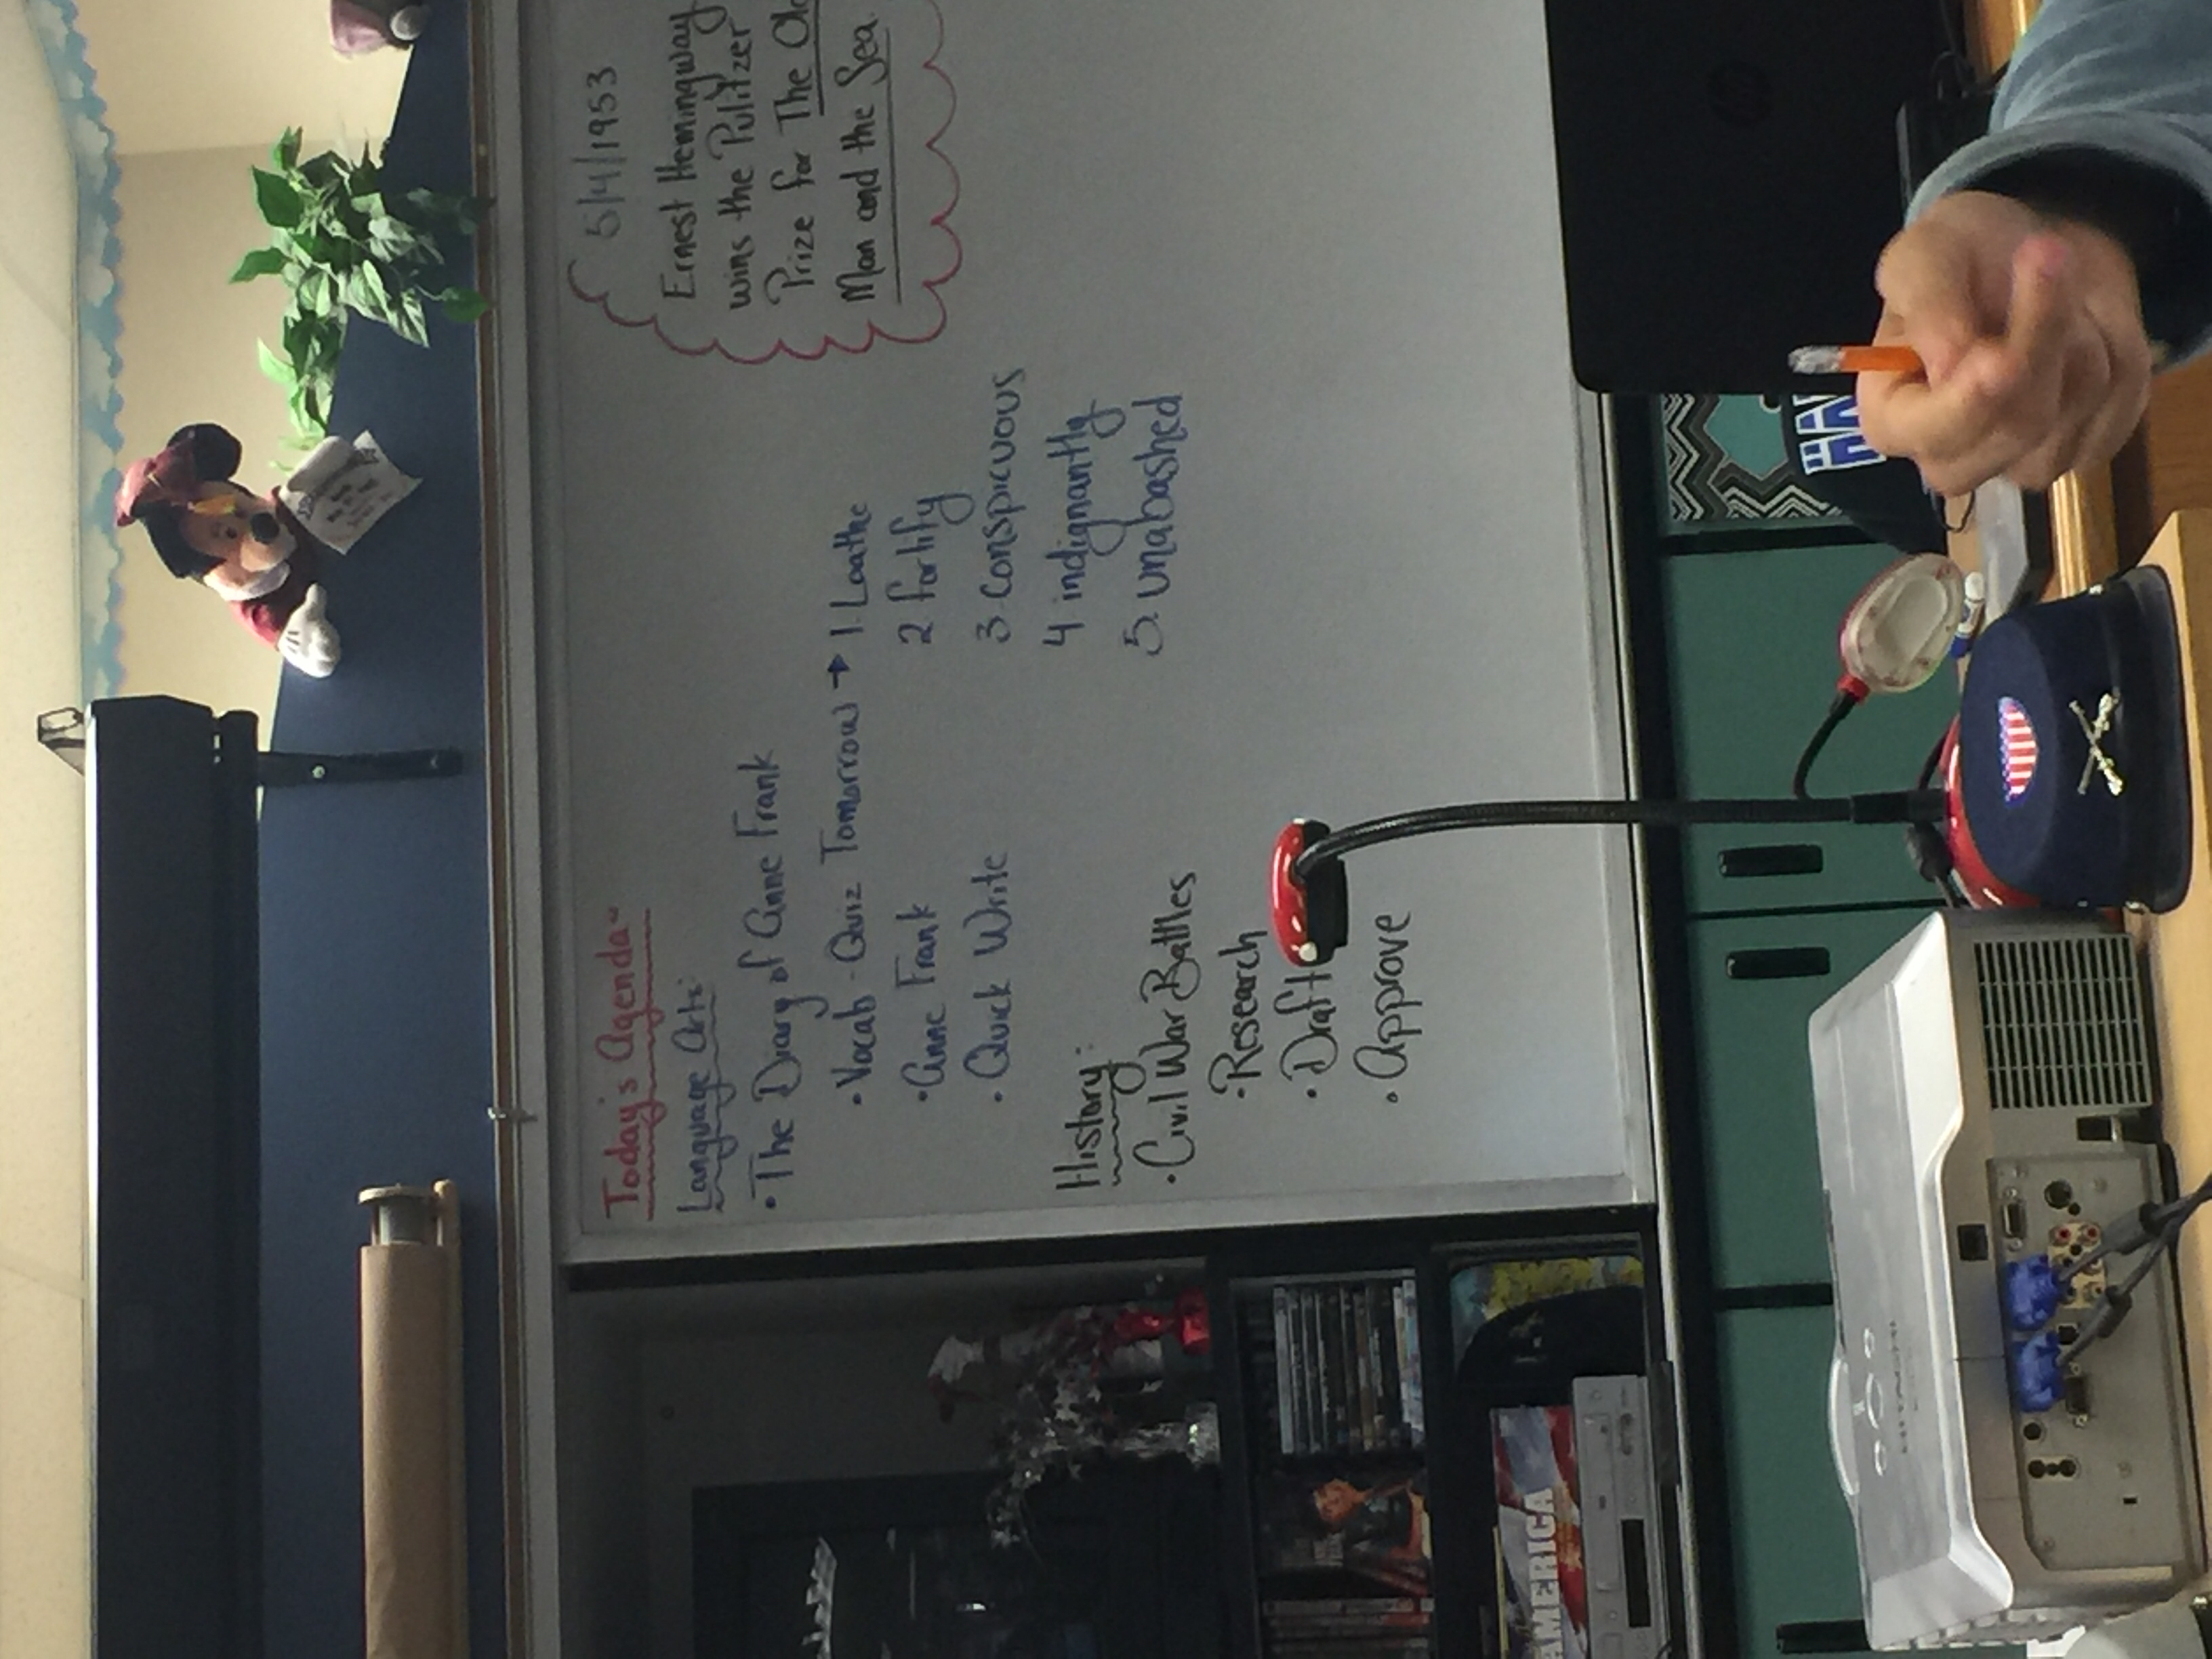 Today's Agenda-
Language Arts:
• The Diary of Anne Frank
• Vocab - Quiz Tomorrow → 1. Loathe
2 fortify
3 conspicuous
4 indignantly
5. unabashed
• Anne Frank
• Quick Write
History:
• Civil War Battles
• Research
• Draft
• Approve
5/4/1953
Ernest Hemingway
wins the Pulitzer
Prize for The Old
Man and the Sea.
AMERICA
HITACHI
hp